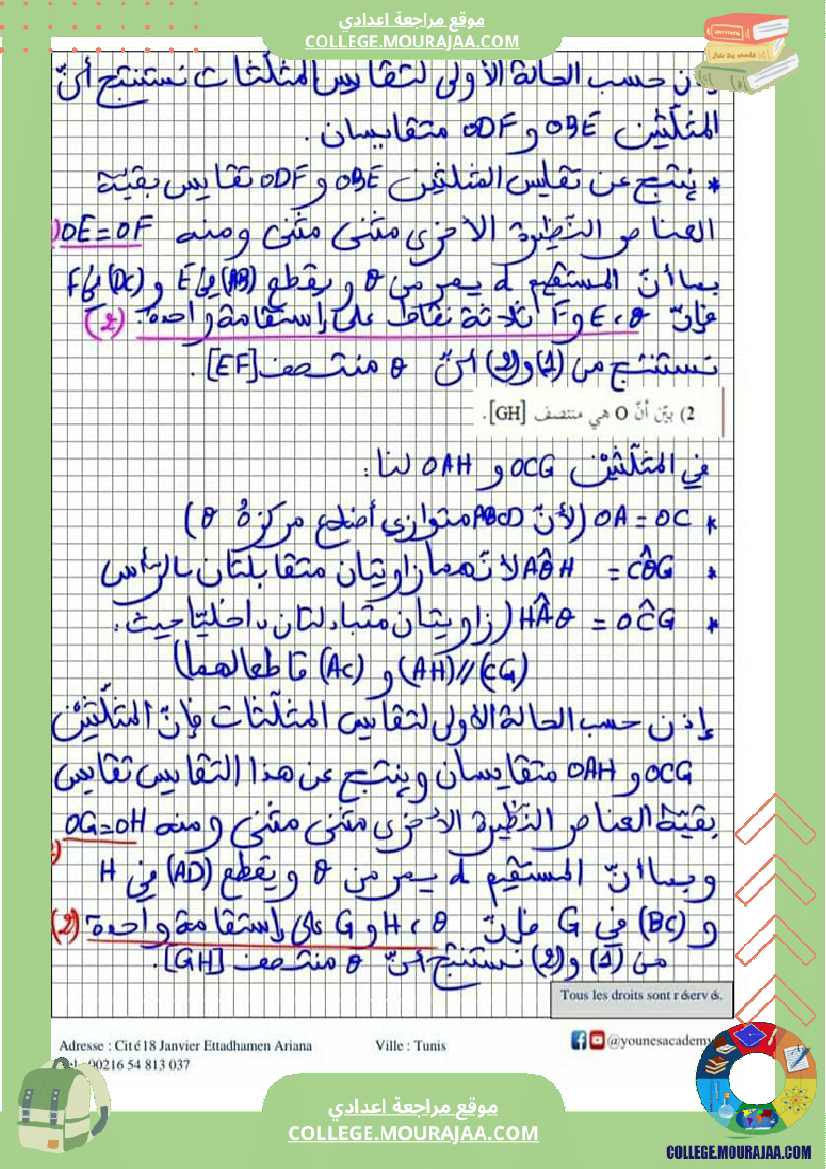 موقع مراجعة اعدادي
COLLEGE.MOURAJAA.COM
حسب الحالة الأولى لتقايس المثلثات نستنتج أنّ
المثلّثين OBE و ODF متقايسان .
* ينتج عن تقايس المثلثين OBE و ODF تقايس بقيّة
العناصر النّظيرة الأخرى مثنى مثنى ومنه OE=OF
بما أنّ المستقيم d يمر من O و يقطع (AB) في E و (DC) في F
فإنّ O ، E و F ثلاثة نقاط على إستقامة واحدة. (2)
نستنتج من (1) و (2) أنّ O منتصف [EF].
2) بيّن أنّ O هي منتصف [GH].
في المثلّثين OCG و OAH لنا:
* OA = OC (لأنّ ABCD متوازي أضلاع مركزه O)
* CÔG = AÔH لأنهما زاويتان متقابلتان بالرأس
* OĈG = HÂO (زاويتان متبادلتان داخليّا حيث:
(AH)//(CG) و (AC) قاطع لهما)
إذن حسب الحالة الأولى لتقايس المثلّثات فإنّ المثلّثين
OCG و OAH متقايسان وينتج عن هذا التقايس تقايس
بقيّة العناصر النّظيرة الأخرى مثنى مثنى ومنه OG=OH
وبما أنّ المستقيم d يمر من O ويقطع (AD) في H
و (BC) في G فإنّ O ، H و G على إستقامة واحدة (2)
من (1) و (2) نستنتج أنّ O منتصف [GH].
Tous les droits sont réservés.
Adresse : Cité 18 Janvier Ettadhamen Ariana Ville : Tunis @younesacademy
00216 54 813 037
موقع مراجعة اعدادي
COLLEGE.MOURAJAA.COM
COLLEGE.MOURAJAA.COM